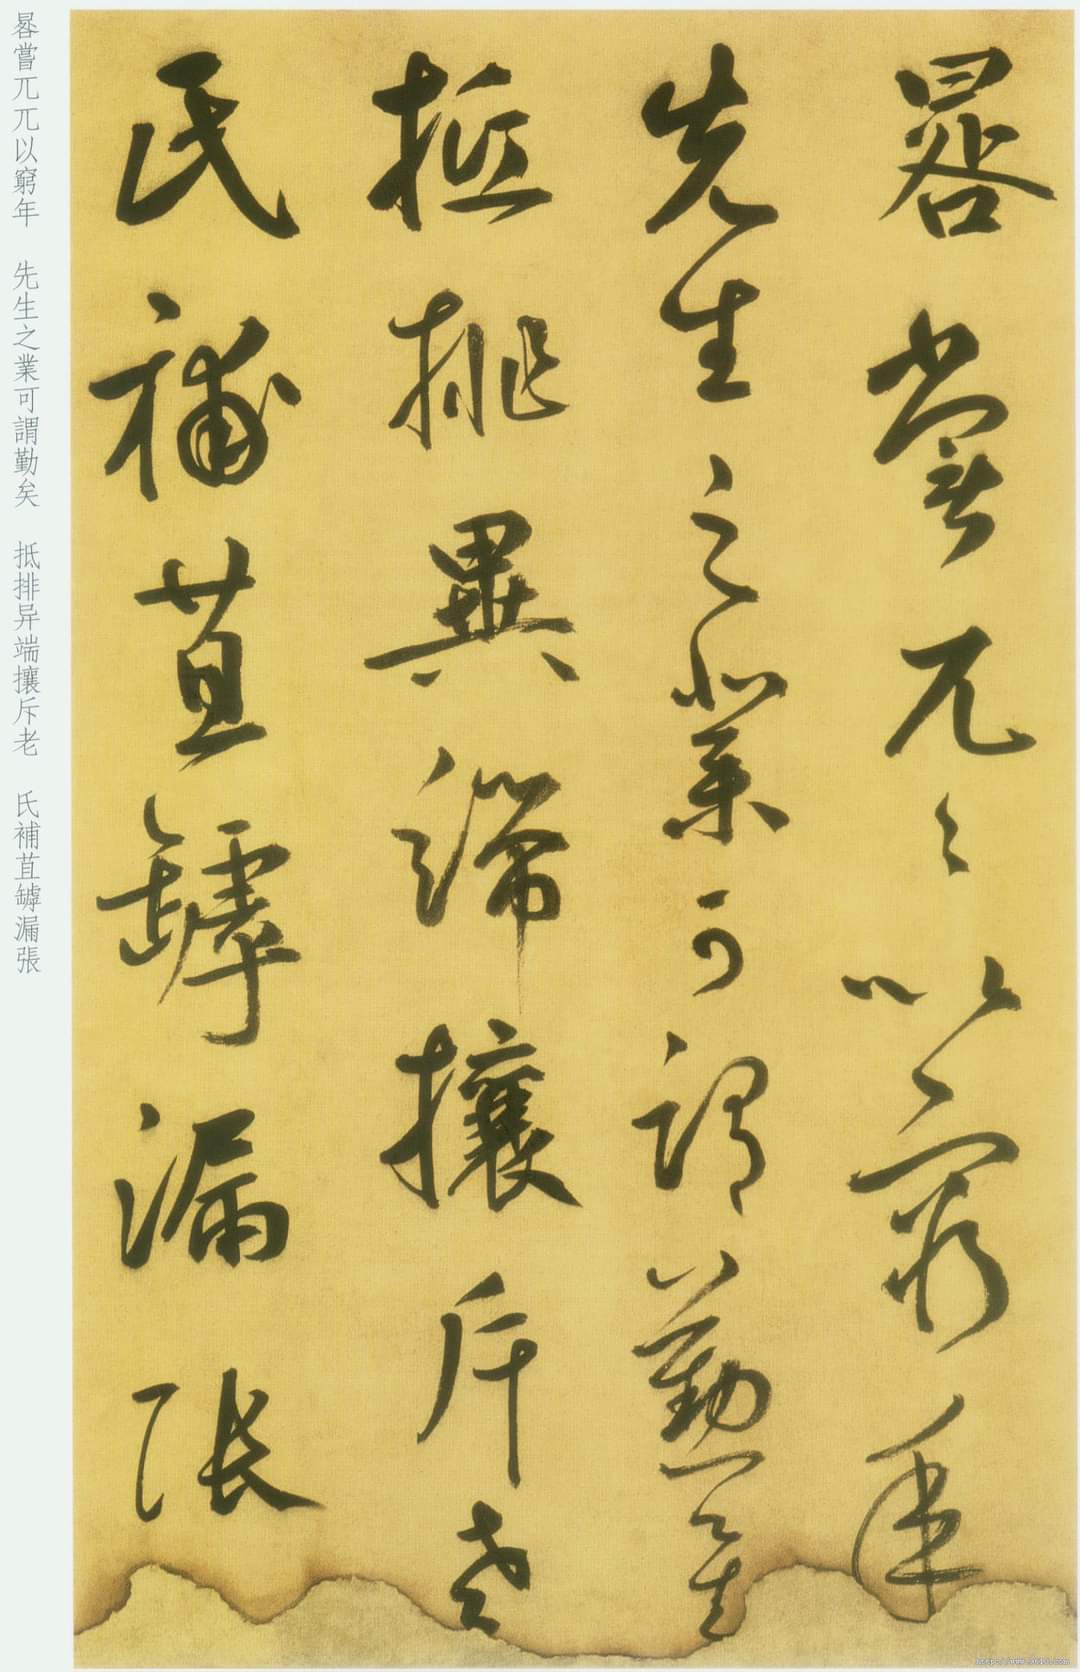 晷嘗兀〻以窮年
先生之業可謂勤矣
抵排異端攘斥老
氏補苴罅漏張
晷嘗兀兀以窮年　先生之業可謂勤矣　抵排异端攘斥老　氏補苴罅漏張